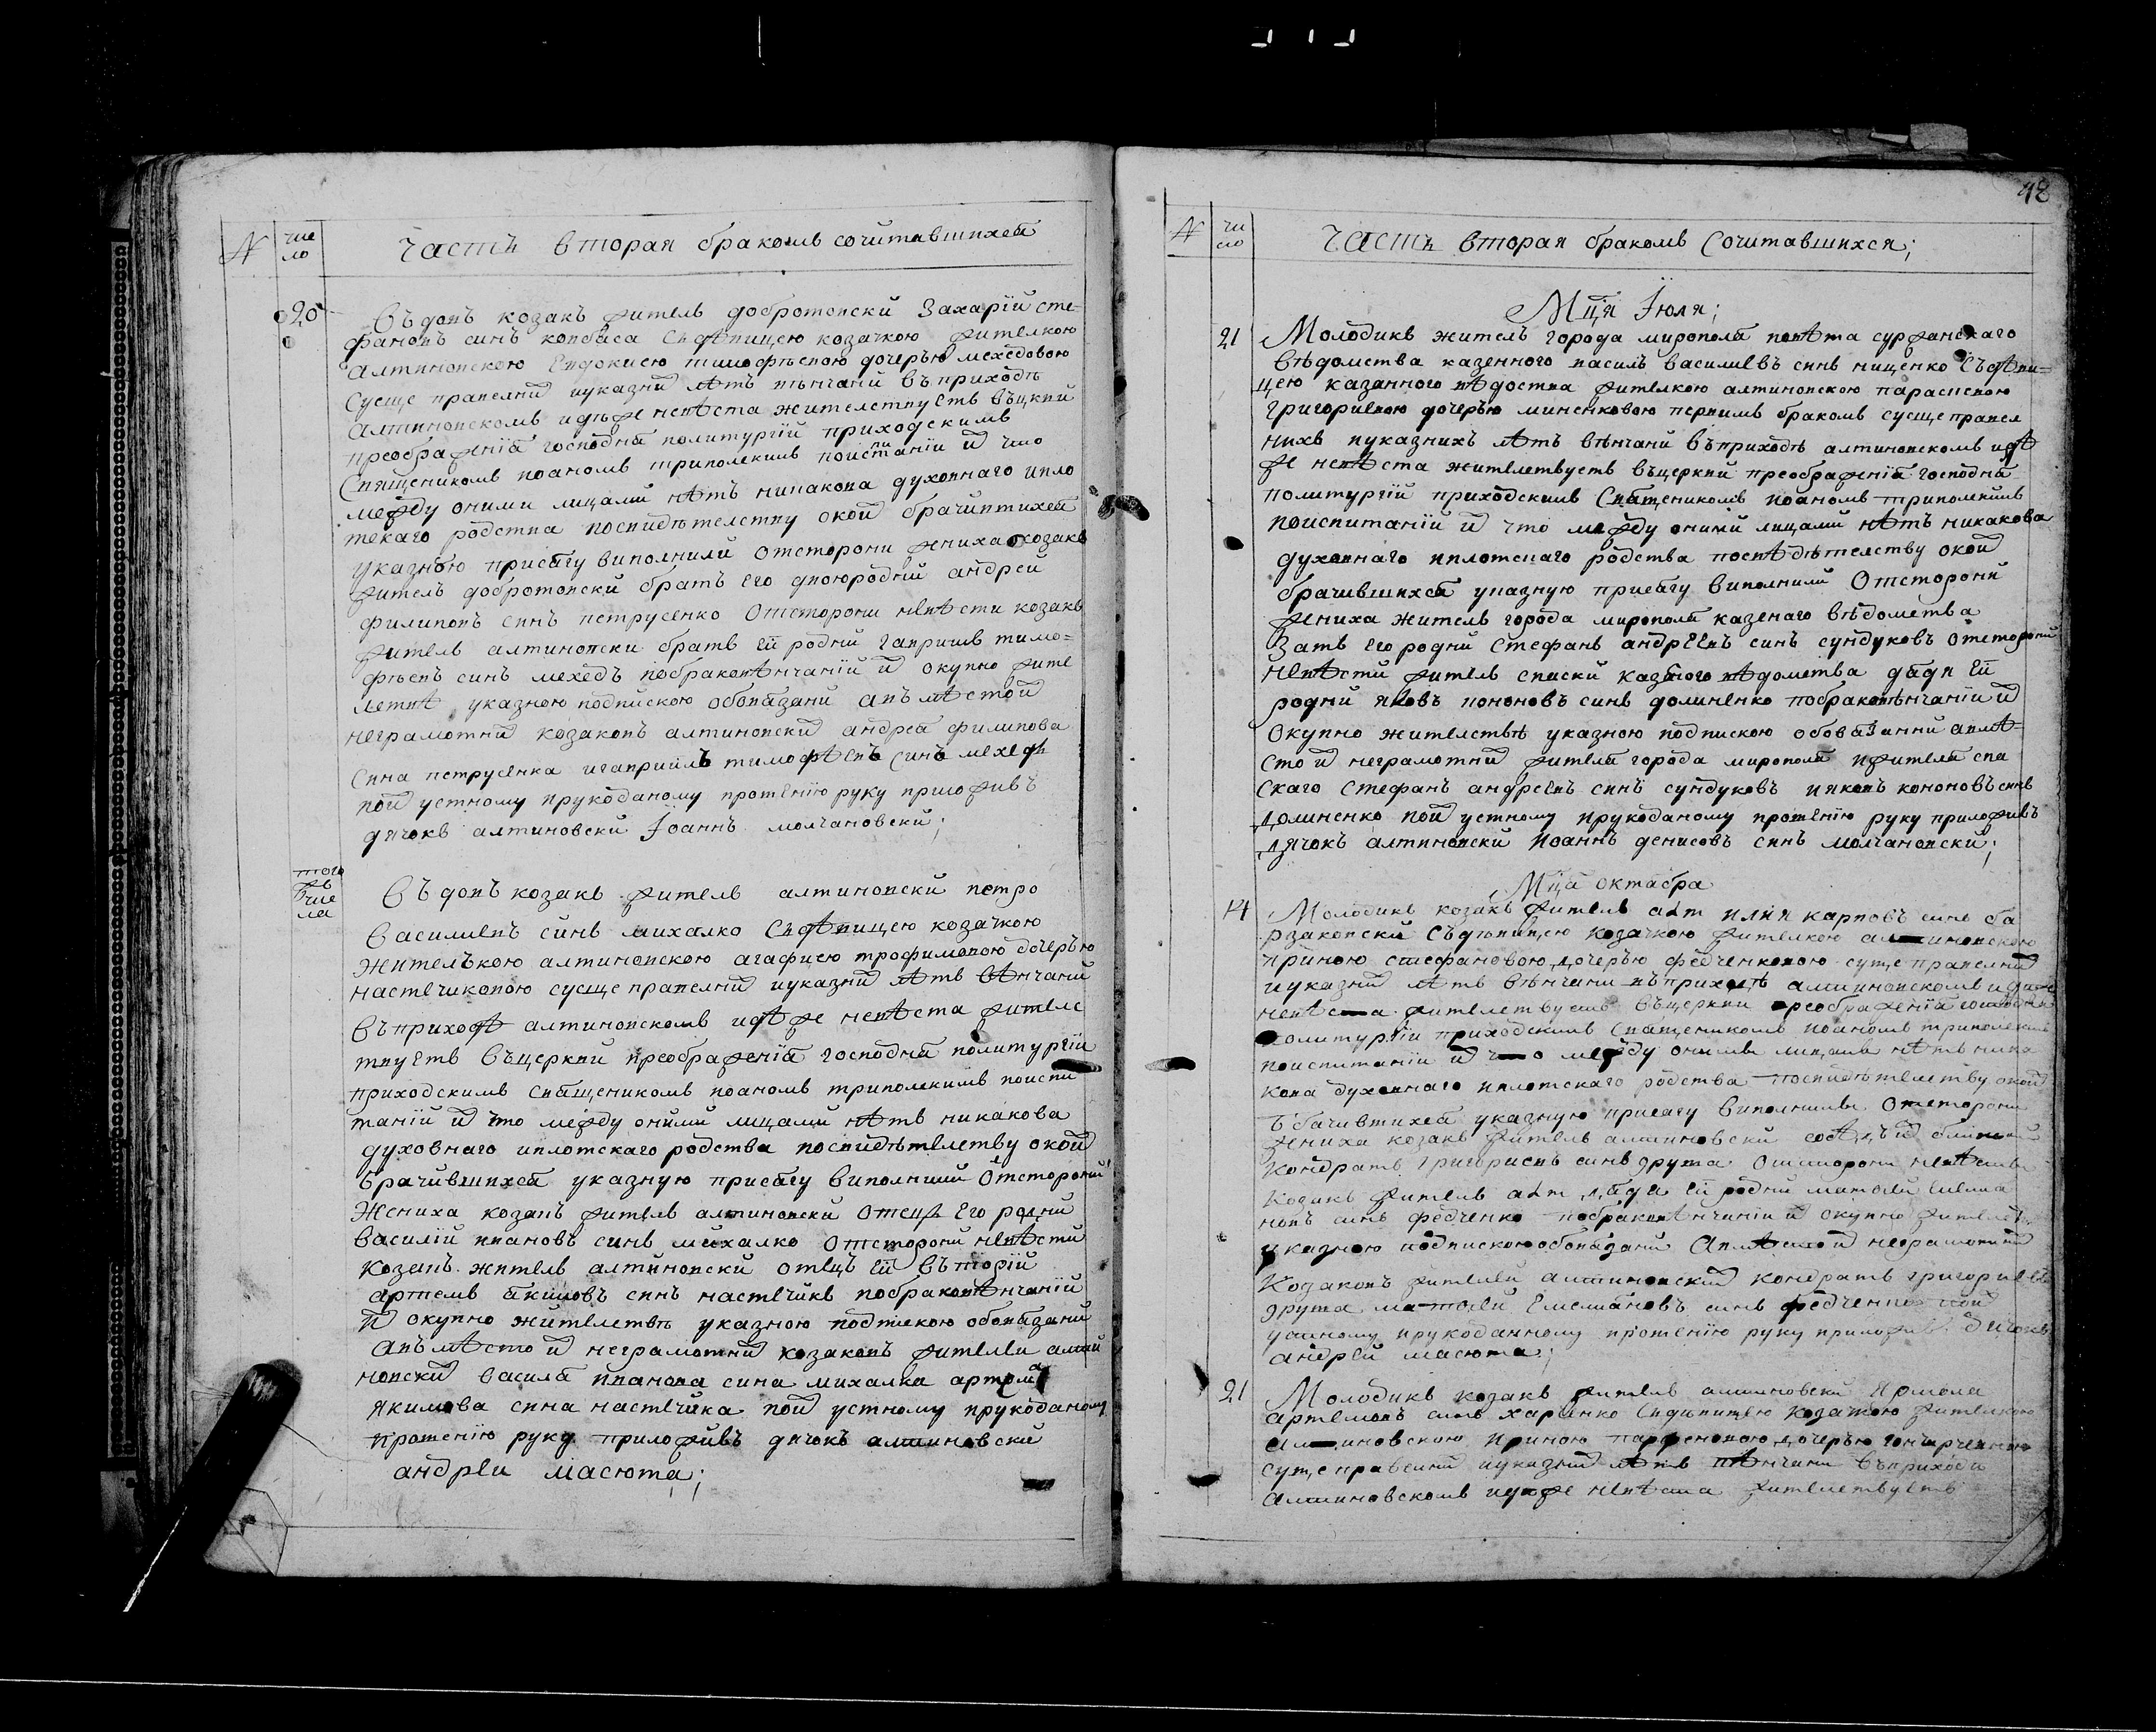 N
чис
ло
Часть вторая бракомъ сочитавшихся
20
Въдовъ козакъ житель добротовски Захарїй сте-
фановъ синъ ковбаса Съдѣвицею козачкою жителкою
алтиновскою Евдокиею тимофѣевою дочерью мехедовою
Суеще правелни иуказни лѣтъ вѣнчани въприходѣ
алтиновскомъ идѣже невѣста жителствуетъ въцкви
преображенїя господня политургїи приходскимъ
Священикомъ иоаномъ триполскимъ поиспитанїи и что
между оними лицами нѣтъ никакова духовнаго ипло
тскаго родства посвидѣтелству окои брачившихся
указною присягу виполнили Отсторони жениха козакъ
житель добротовски братъ его двоюродни андреи
филиповъ синъ петрусенко Отсторони невѣсти козакъ
житель алтиновски братъ еи родни гаврилъ тимо-
фѣевъ синъ мехедъ побраковѣнчанїи и окупно жите
лствѣ указною подпискою обовязани авъмѣстои
неграмотни козаковъ алтиновски андрея филипова
сина петрусенка игавриилъ тимофѣевъ синъ мехедъ
пои устному ирукоданому прошенїю руку приложивъ
дячокъ алтиновски Їоаннъ молчановски;
того
жъ
чис
ла
Въдовъ козакъ житель алтиновски петро
Василиевъ синъ михалко Съдѣвицею козачкою
жителъкою алтиновскою агафиею трофимовою дочерью
настечиковою суеще правелни иуказни лѣтъ вѣнчани
въприходѣ алтиновскомъ идѣже невѣста жителс
твуетъ въцеркви преображенїя господня политургїи
приходскимъ священикомъ иоаномъ триполскимъ поиспи
танїи и что между оними лицами нѣтъ никакова
духовнаго иплотскаго родства посвидѣтелству окои
брачившихся указную присягу виполнили Отсторони
Жениха козакъ житель алтиновски отецъ его родни
Василїи ивановъ синъ михалко Отсторони невѣсти
козакъ житель алтиновски отецъ еи въторїи
артемъ якимовъ синъ настечикъ побраковѣнчанїи
и окупно жителствѣ указною подпискою обовязани
авъмѣсто и неграмотни козаковъ жителеи алти
новски василя иванова сина михалка артема
якимова сина настечика пои устному ирукоданому
прошенїю руку приложивъ дячокъ алтиновски
андреи масюта;
48
N
чи
сло
Часть вторая бракомъ Сочитавшихся;
Мця Їюля;
21
Молодикъ житель города мирополя повѣта суржанскаго
вѣдомства казенного василъ василиевъ синъ нищенко Съдѣви-
цею казанного вѣдоства жителкою алтиновскою параскевою
григориевою дочерью миненковою первимъ бракомъ суеще правел
нихъ иуказнихъ лѣтъ вѣнчани въприходѣ алтиновскомъ идѣ
же невѣста жителствуетъ въцеркви преображенїя господня
политургїи приходскимъ Священикомъ иоаномъ триполскимъ
поиспитанїи и что между оними лицами нѣтъ никакова
духовнаго иплотскаго родства посвѣдѣтелству окои
брачившихся указную присягу виполнили Отсторони
жениха житель города мирополя казенаго вѣдомства
Зать его родни Стефанъ андреевъ синъ сундуковъ отсторони
невѣсти житель спаски казного вѣдомства дядя еи
родни яковъ кононовъ синъ долиненко побраковѣнчанїи и
окупно жителствѣ указною подпискою обовязанни авмѣ-
сто и неграмотни жителя города мирополя ижителя спа
скаго Стефанъ андреевъ синъ сундуковъ ияковъ кононовъ синъ
долиненко пои устному ирукоданому прошенїю руку приложивъ
дячокъ алтиновски Иоаннъ денисовъ синъ молчановски;
Мця октября
14
Молодикъ козакъ житель алт илия карповъ синъ ба
рзаковски Съдѣвицею козачкою жителкою алтиновскою
ириною стефановою дочерью федченковою суще правелни
иуказни лѣтъ вѣнчани въприходѣ алтиновскомъ идѣже
невѣста жителствуетъ въцеркви преображенїя господня
политургїи приходскимъ Священикомъ иоаномъ триполскимъ
поиспитанїи и что между оними лицами нѣтъ ника
кова духовнаго иплотскаго родства посвидѣтелству окои
бачившихся указную присягу виполнили Отсторони
жениха козакъ житель алтиновски сосѣдъ и ближни
Кондратъ григориевъ синъ друта Отсторони невѣсти
Козакъ житель алт дядя еи родни матфеи емелиа
новъ синъ федченко побраковѣнчанїи и окупно жителствѣ
указною подпискою обовязани Авмѣсто и неграмотни
Козаковъ жителеи алтиновски кондратъ григориевъ
друта матфеи Емелиановъ синъ федченко пои
усному ирукоданному прошенїю руку приложивъ дячокъ
андреи масюта;
21
Молодикъ козакъ житель алтиновски Ярмола
артемовъ синъ харинко Съдѣвицею козачкою жителкою
алтиновскою ириною парфеновою дочерью гончаренковою
суще правелни иуказни лѣтъ вѣнчани въприходѣ
алтиновскомъ идѣже невѣста жителствуетъ